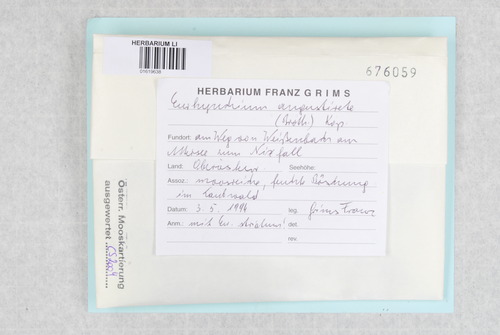 HERBARIUM LI
676059
HERBARIUM FRANZ GRIMS
Eurhynchium angustirete
(Broth.) Kop
Fundort: am Weg von Weißenbach am
Attersee zum Nixfall
Land: Seehöhe:
Assoz.: moosreiche, feuchte Böschung
im Laubwald
Datum: 3. 5. 1994 leg. Grims Franz
Anm.: mit Eu. striatum det.
rev.
Österr. Mooskartierung
ausgewertet